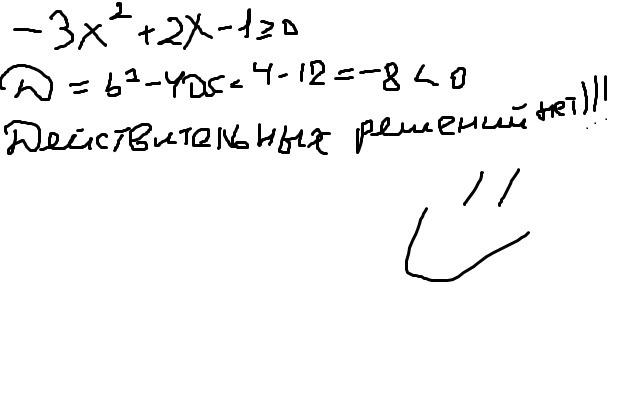 -3x²+2x-1≥0
D = b²-4ac = 4-12 = -8 < 0
Действительных решений нет)))!!!